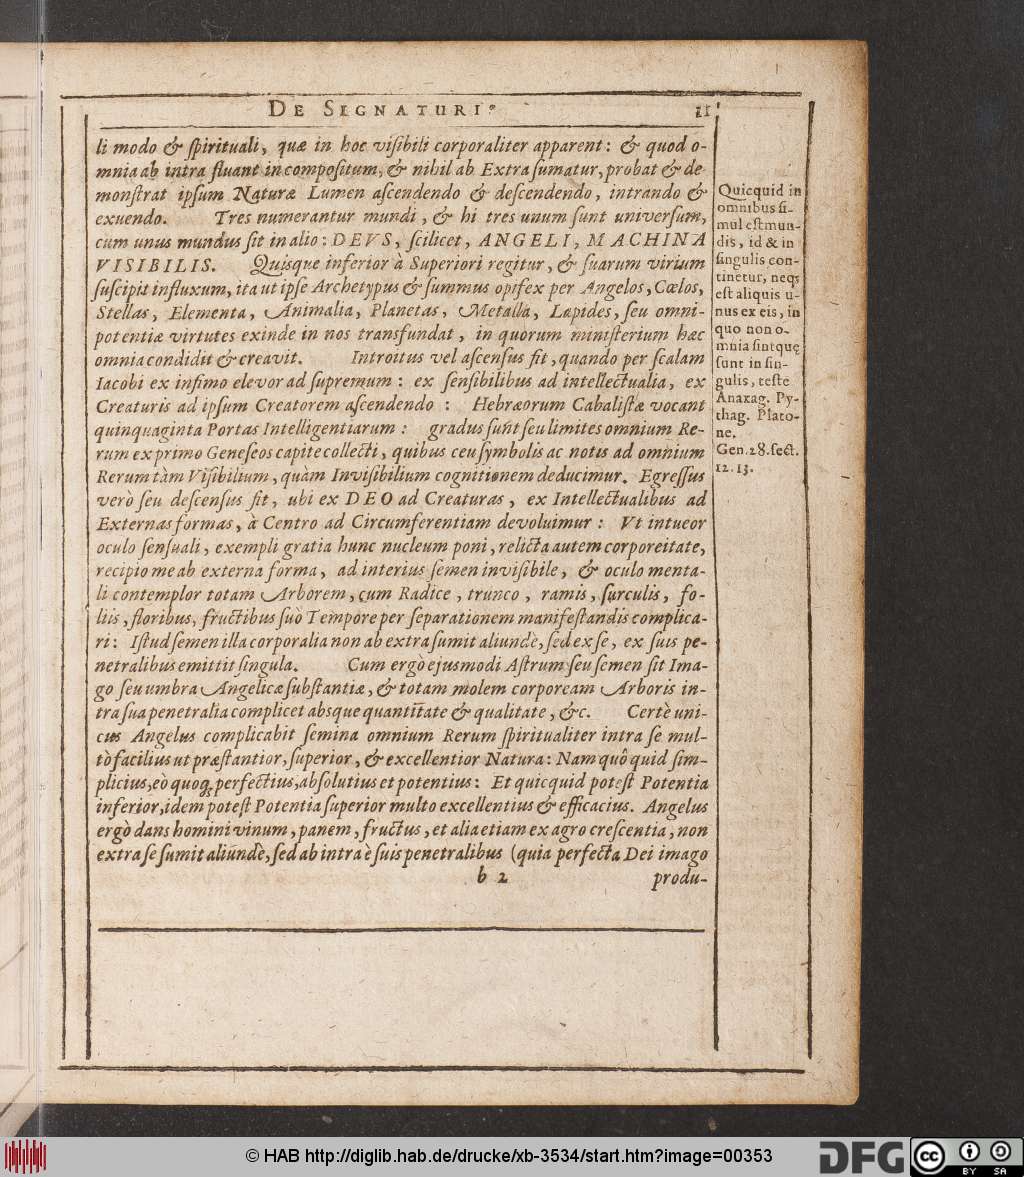 DE SIGNATURIS
11
li modo & ſpirituali, quæ in hoc viſibili corporaliter apparent: & quod o-
mnia ab intra fluant in compoſitum, & nihil ab Extra ſumatur, probat & de
monſtrat ipſum Naturæ Lumen aſcendendo & deſcendendo, intrando &
exuendo. Tres numerantur mundi, & hi tres unum ſunt univerſum,
cum unus mundus ſit in alio: DEVS, ſcilicet, ANGELI, MACHINA
VISIBILIS. Quisque inferior à Superiori regitur, & ſuarum virium
ſuſcipit influxum, ita ut ipſe Archetypus & ſummus opifex per Angelos, Cœlos,
Stellas, Elementa, Animalia, Planetas, Metalla, Lapides, ſeu omni-
potentiæ virtutes exinde in nos transfundat, in quorum miniſterium hæc
omnia condidit & creavit. Introitus vel aſcenſus fit, quando per ſcalam
Iacobi ex infimo elevor ad ſupremum: ex ſenſibilibus ad intellectualia, ex
Creaturis ad ipſum Creatorem aſcendendo: Hebræorum Cabaliſtæ vocant
quinquaginta Portas Intelligentiarum: gradus ſunt ſeu limites omnium Re-
rum ex primo Geneſeos capite collecti, quibus ceu ſymbolis ac notis ad omnium
Rerum tàm Viſibilium, quàm Inviſibilium cognitionem deducimur. Egreſſus
verò ſeu deſcenſus fit, ubi ex DEO ad Creaturas, ex Intellectualibus ad
Externas formas, à Centro ad Circumferentiam devoluimur: Vt intueor
oculo ſenſuali, exempli gratia hunc nucleum poni, relicta autem corporeitate,
recipio me ab externa forma, ad interius ſemen inviſibile, & oculo menta-
li contemplor totam Arborem, cum Radice, trunco, ramis, ſurculis, fo-
liis, floribus, fructibus ſuò Tempore per ſeparationem manifeſtandis complica-
ri: Iſtud ſemen illa corporalia non ab extra ſumit aliundè, ſed ex ſe, ex ſuis pe-
netralibus emittit ſingula. Cum ergò ejusmodi Aſtrum ſeu ſemen ſit Ima-
go ſeu umbra Angelicæ ſubſtantiæ, & totam molem corpoream Arboris in-
tra ſua penetralia complicet absque quantitate & qualitate, &c. Certè uni-
cus Angelus complicabit ſemina omnium Rerum ſpiritualiter intra ſe mul-
tò facilius ut præſtantior, ſuperior, & excellentior Natura: Nam quô quid ſim-
plicius, eò quoq; perfectius, abſolutius et potentius: Et quicquid poteſt Potentia
inferior, idem poteſt Potentia ſuperior multo excellentius & efficacius. Angelus
ergò dans homini vinum, panem, fructus, et alia etiam ex agro creſcentia, non
extra ſe ſumit aliundè, ſed ab intra è ſuis penetralibus (quia perfecta Dei imago
b 2
produ-
Quicquid in
omnibus ſi-
mul eſt mun-
dis, id & in
ſingulis con-
tinetur, neqȝ
eſt aliquis u-
nus ex eis, in
quo non o-
mnia ſint quę
ſunt in ſin-
gulis, teſte
Anaxag. Py-
thag. Plato-
ne.
Gen. 28. ſect.
12. 13.
© HAB http://diglib.hab.de/drucke/xb-3534/start.htm?image=00353
DFG
cc BY SA